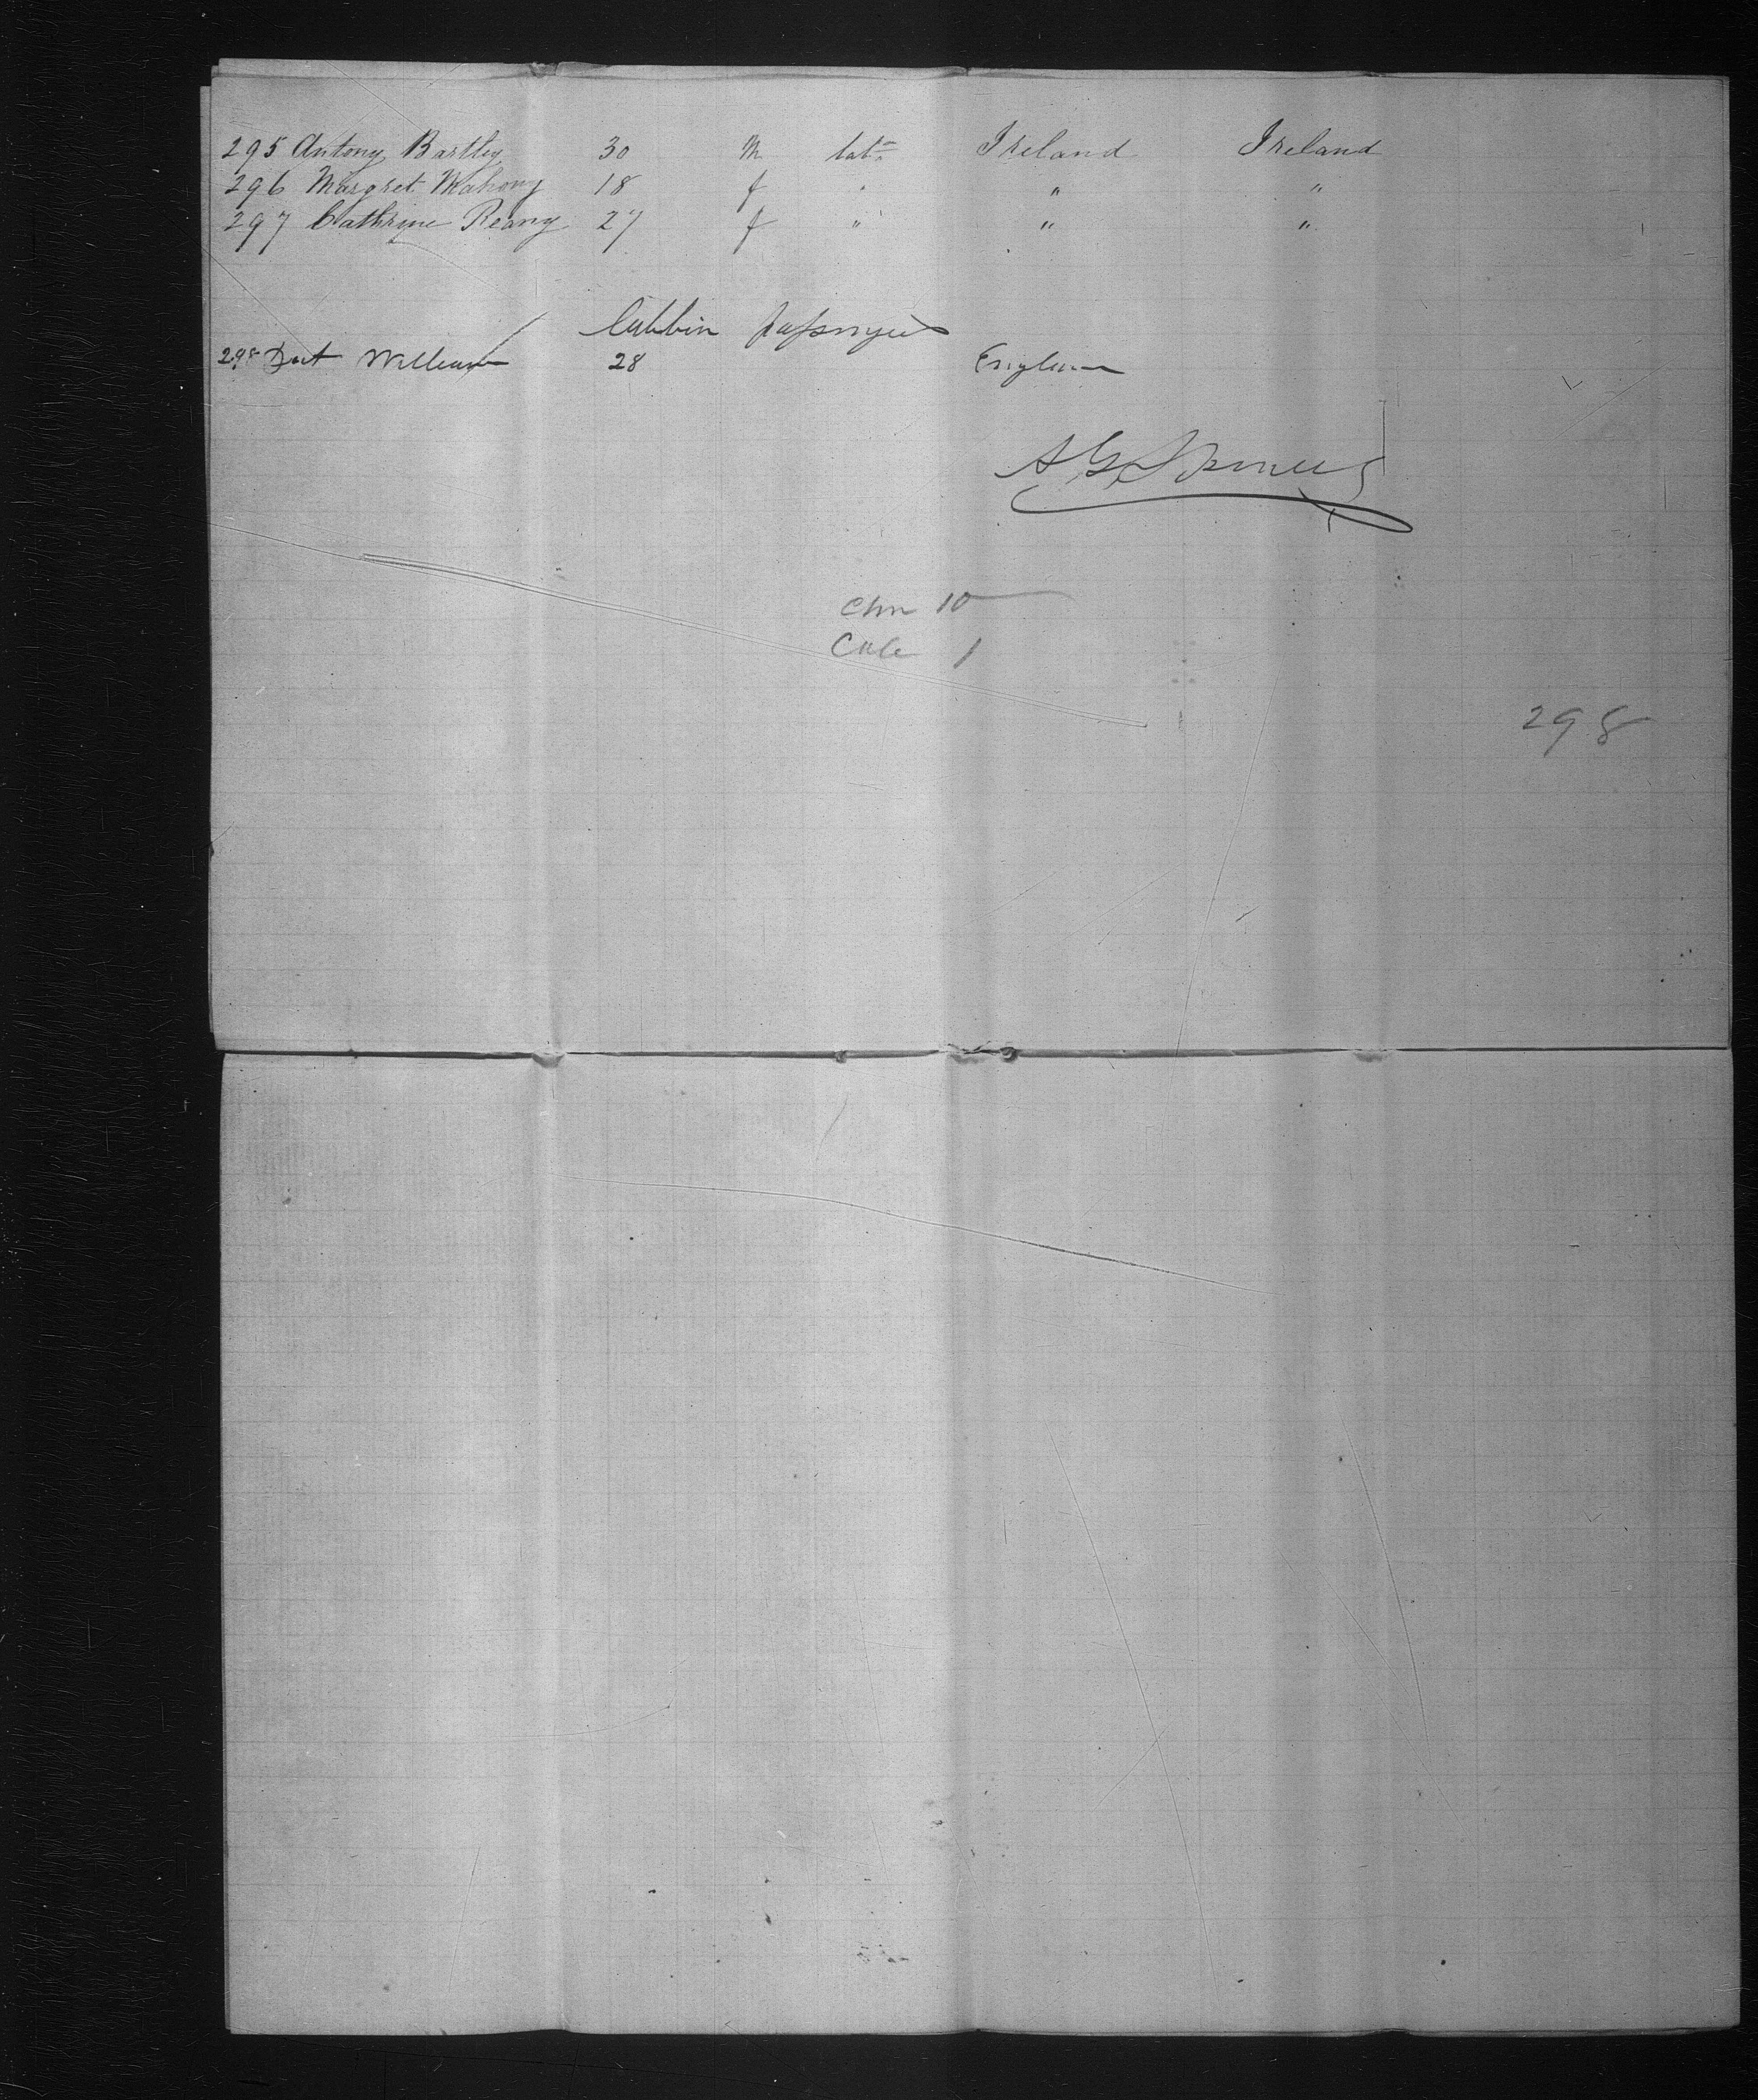 295 Antony Bartley 30 M lab. Ireland Ireland
296 Margret Mahony 18 f " " "
297 Cathrine Reany 27 f " " "
Cabbin passengers
298 William 28 England
A. G.
Chn 10
Cab 1
298